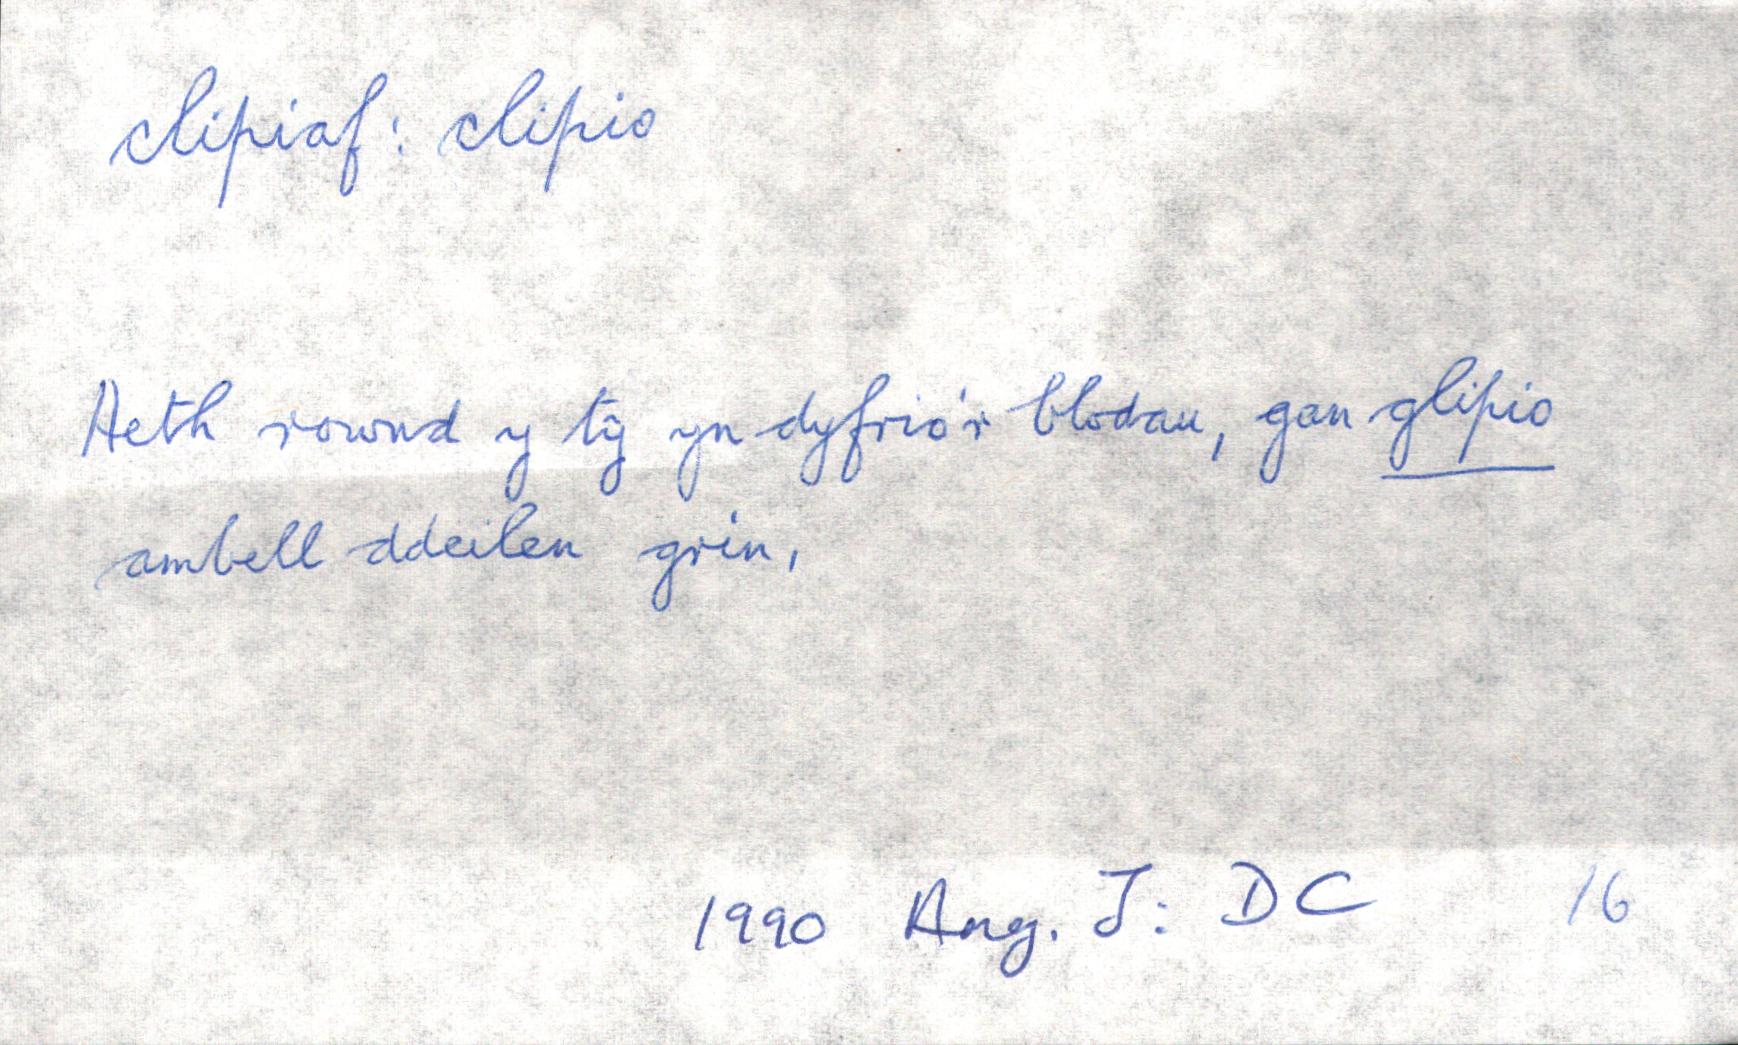 clipiaf: clipio
Aeth rownd y tŷ yn dyfrio'r blodau, gan glipio
ambell ddeilen grin,
1990 Ang. J: DC 16